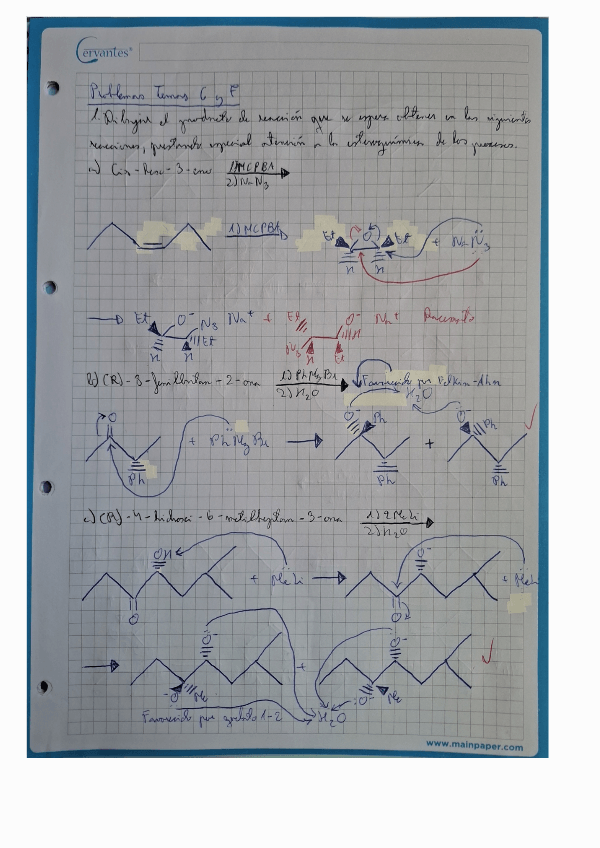 Cervantes
Problemas Temas 6 y 7
1. Dibujar el producto de reacción que se espera obtener en las siguientes
reacciones, prestando especial atención a la estereoquímica de los procesos.
a) Cis-hexe-3-eno 1) MCPBA
2) NaN3
1) MCPBA
Et O Et + NaN3
H H
Et O⁻ N3 Na⁺ + Et O⁻ H Na⁺ Racemato
H H Et N3 H Et
b) (R)-3-fenilbutan-2-ona 1) PhMgBr
2) H2O
Favorecido por Felkin-Ahn
H2O
O + PhMgBr O⁻ Ph + O⁻ Ph
Ph Ph Ph
c) (R)-4-hidroxi-6-metilheptan-3-ona 1) 2MeLi
2) H2O
OH + MeLi O⁻ + MeLi
O O
O⁻ + O⁻
⁻O Me O⁻ Me
Favorecido por quelato 1-2 H2O
www.mainpaper.com